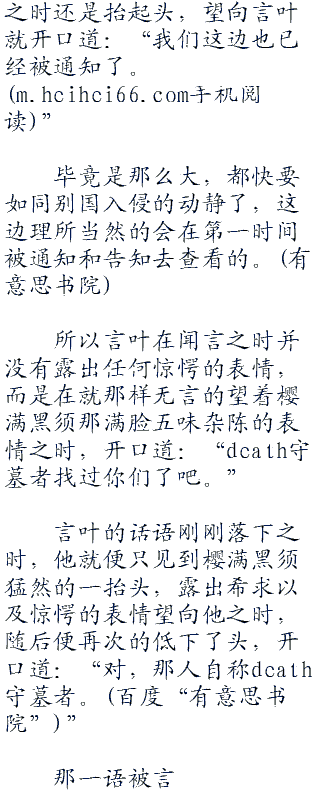 之时还是抬起头，望向言叶
就开口道：“我们这边也已
经被通知了。
(m.hcihci66.com手机阅
读)”
毕竟是那么大，都快要
如同别国入侵的动静了，这
边理所当然的会在第一时间
被通知和告知去查看的。(有
意思书院)
所以言叶在闻言之时并
没有露出任何惊愕的表情，
而是在就那样无言的望着樱
满黑须那满脸五味杂陈的表
情之时，开口道：“dcath守
墓者找过你们了吧。”
言叶的话语刚刚落下之
时，他就便只见到樱满黑须
猛然的一抬头，露出希求以
及惊愕的表情望向他之时，
随后便再次的低下了头，开
口道：“对，那人自称dcath
守墓者。(百度“有意思书
院”)”
那一语被言